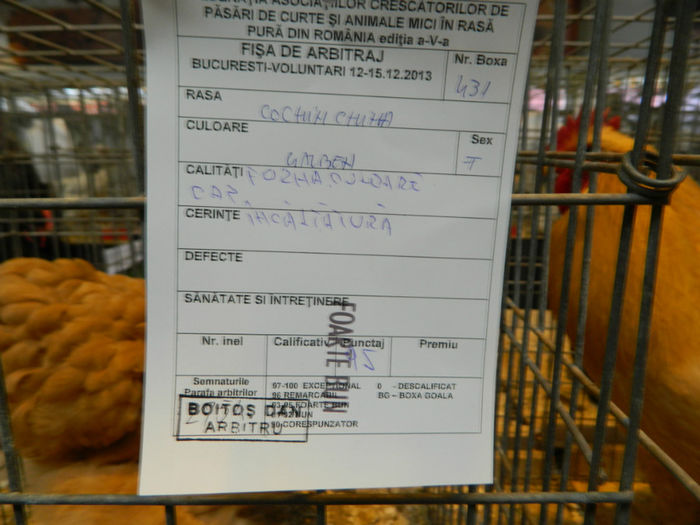 ASOCIAȚIILOR CRESCĂTORILOR DE
PĂSĂRI DE CURTE ȘI ANIMALE MICI ÎN RASĂ
PURĂ DIN ROMÂNIA ediția a-V-a
FIȘA DE ARBITRAJ
BUCURESTI-VOLUNTARI 12-15.12.2013
Nr. Boxa
431
RASA
COCHIN CHINA
CULOARE
GALBEN
Sex
F
CALITĂȚI FORMA, CULOARE
CAP,
CERINȚE INCALTATURA
DEFECTE
SĂNĂTATE SI ÎNTREȚINERE
Nr. inel
Calificativ
Punctaj
Premiu
95
FOARTE BUN
Semnaturile
Parafa arbitrilor
97-100 EXCEPTIONAL
0 - DESCALIFICAT
96 REMARCABIL
BG – BOXA GOALA
93-95 FOARTE BUN
BUN
90 CORESPUNZATOR
BOITOȘ DAN
ARBITRU